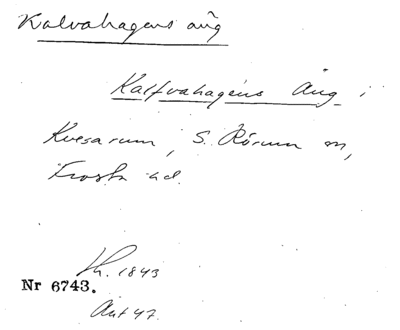 Kalvahagens äng
Kalfvahagens Äng i
Kvesarum, S. Rörum sn,
Frosta hd.
Th. 1843
Nr 6743.
Ant 47.